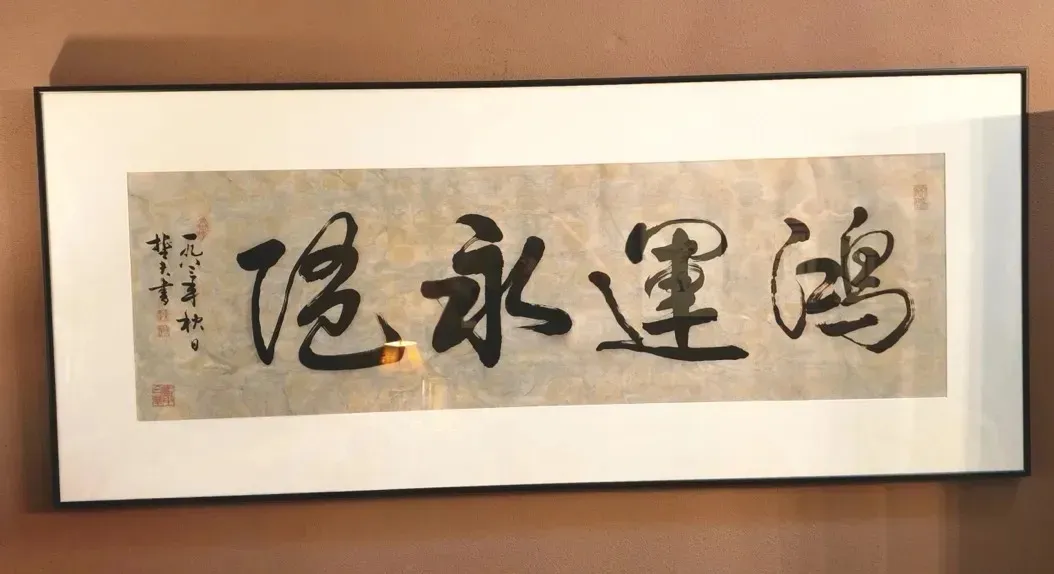 鴻運永隆
一九八三年秋日
書